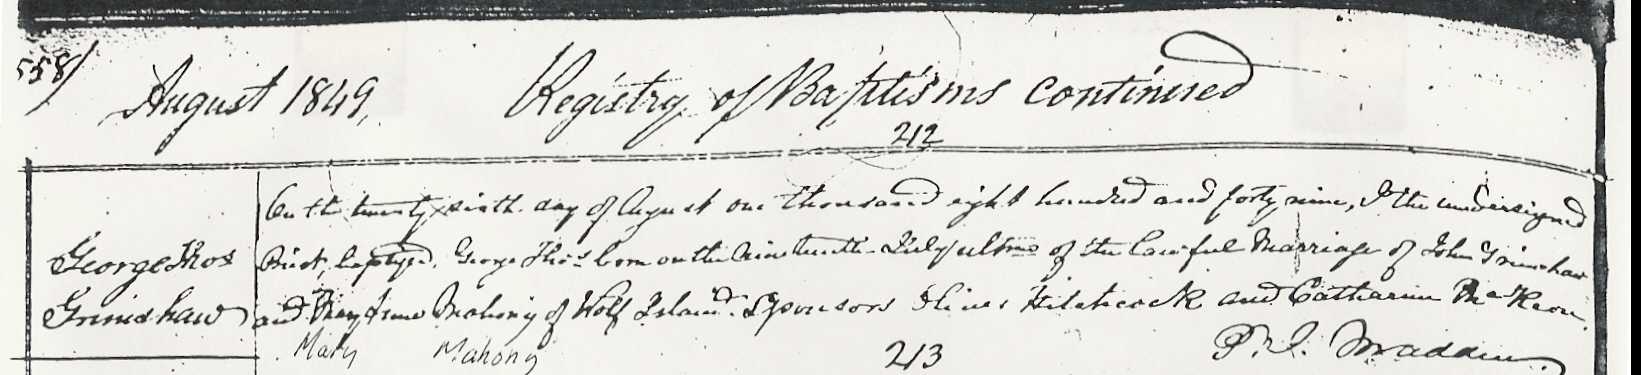 558/
August 1849, Registry of Baptisms continued
212
George Thos Grimshaw
On the twenty sixth day of August one thousand eight hundred and forty nine, I the undersigned
Priest, baptized, George Thos born on the Nineteenth July ultmo of the lawful Marriage of John Grimshaw
and Mary Anne Mahony of Wolf Island. Sponsors Hitchcock and Catharine McKeon.
Mary Mahony
213
P. J. Madden